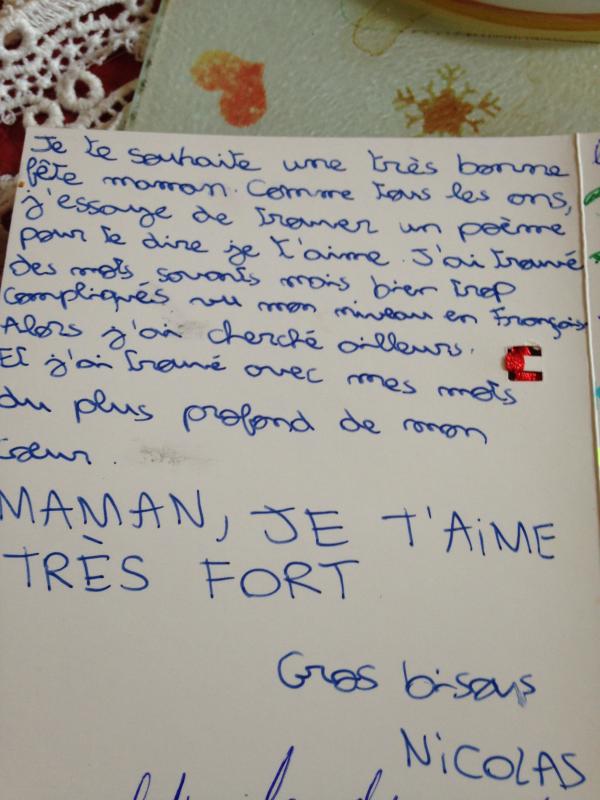 Je te souhaite une très bonne
fête maman. Comme tous les ans,
j'essaye de trouver un poème
pour te dire je t'aime. J'ai trouvé
des mots savants mais bien trop
compliqués vu mon niveau en Français
Alors j'ai cherché ailleurs.
Et j'ai trouvé avec mes mots
du plus profond de mon
cœur.
MAMAN, JE T'AiME
TRÈS FORT
Gros bisous
NiCOLAS